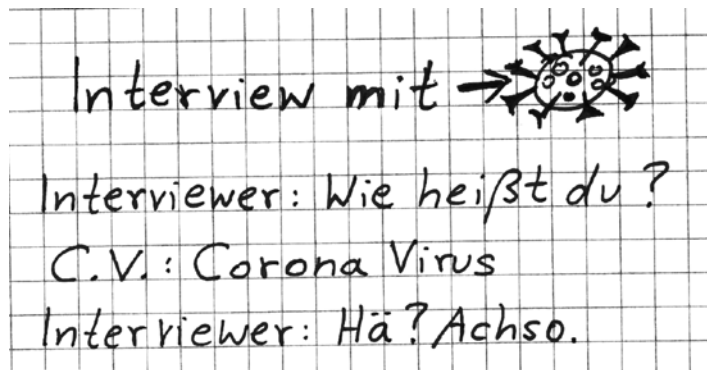 Interview mit →
Interviewer: Wie heißt du?
C.V.: Corona Virus
Interviewer: Hä? Achso.